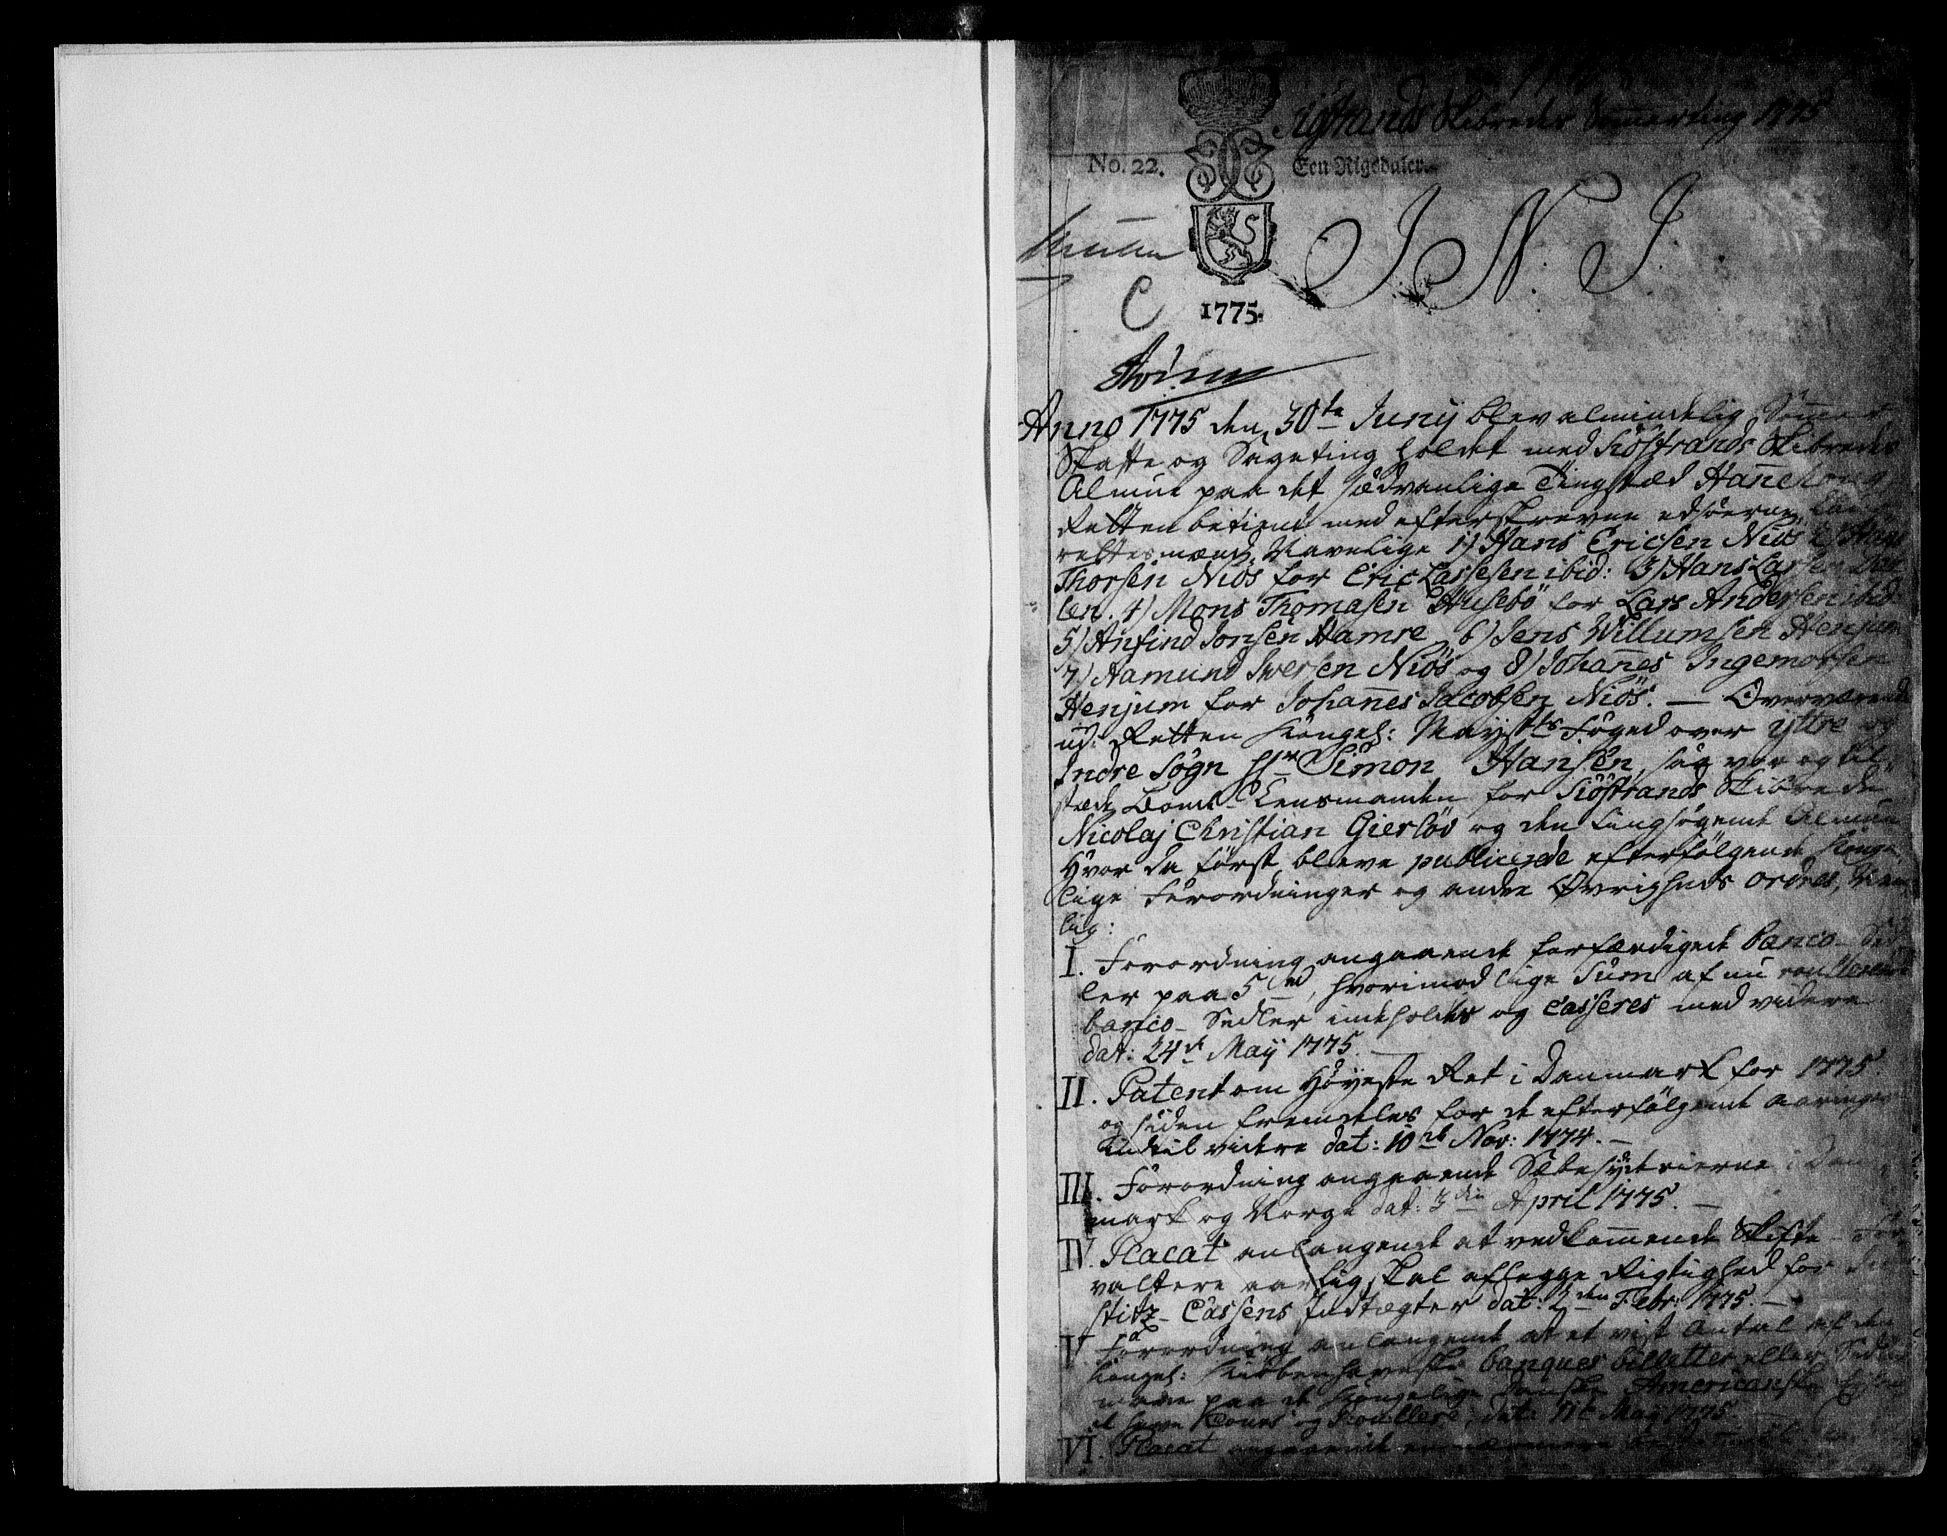 Siøstrands Skibredes Sommerting 1775
No. 22. Een Rigsdaler.
I. N. I.
C
1775.
Anno 1775 den 30te Junij blev almindelig Sommer
Skatte og Sageting holdet med Siöstrands Skibredes
Almue paa det sædvanlige Tingstæd Hanne
Retten betient med efterskrevne edsvorne Laug
rettesmænd Navnlige 1) Hans Ericsen Niös 2)
Thorsen Niös for Eric Lassesen ibid: 3) Hans Larsen
len. 4) Mons Thomasen Husebö for Lars Andersen ibid
5) Anfind Jonsen Hamre 6) Jens Willumsen Henjum
7) Aamund Iversen Niös og 8) Johannes Ingemorsen
Henjum for Johannes Jacobsen Niös. — Overværende
ud: Retten Kongel: Mayts Foged over yttre og
Indre Sogn Hr Simon Hansen, saa var og til
stæde Bonde-Lensmanden for Siöstrands Skibrede
Nicolaj Christian Gierlöv og den tingsøgende Almue
Hvor da først bleve publicerede efterfölgende Konge
lige Forordninger og andre Øvrigheds ordres, Nem
lig:
I. Forordning angaaende forfærdigede Banco-Sed
ler paa 5 rd, hvorimod lige Sum af nu roullerende
banco-Sedler indeholdes og Casseres med videre
dat: 24de May 1775. —
II. Patent om Höyeste Ret i Danmark for 1775.
og siden fremdeles for de efterfölgende aaringer
indtil videre dat: 10de Nov: 1774. —
III. Forordning angaaende Sæbesyderierne i Dan
mark og Norge dat: 3die April 1775. —
IV. Placat anlangende at vedkommende Skifte-For
valtere aarlig skal aflegge Rigtighed for Ju
stitz-Cassens Indtægter dat: 2den Febr: 1775. —
V. Forordning anlangende at et vist Antal af den
Kongel: Kiøbenhavnske banques billetter eller Sedler
maae paa de Kongelige Danske Americanske Eylande
have Cours og Roullere, dat: May 1775. —
VI. Placat angaaende en nærmere